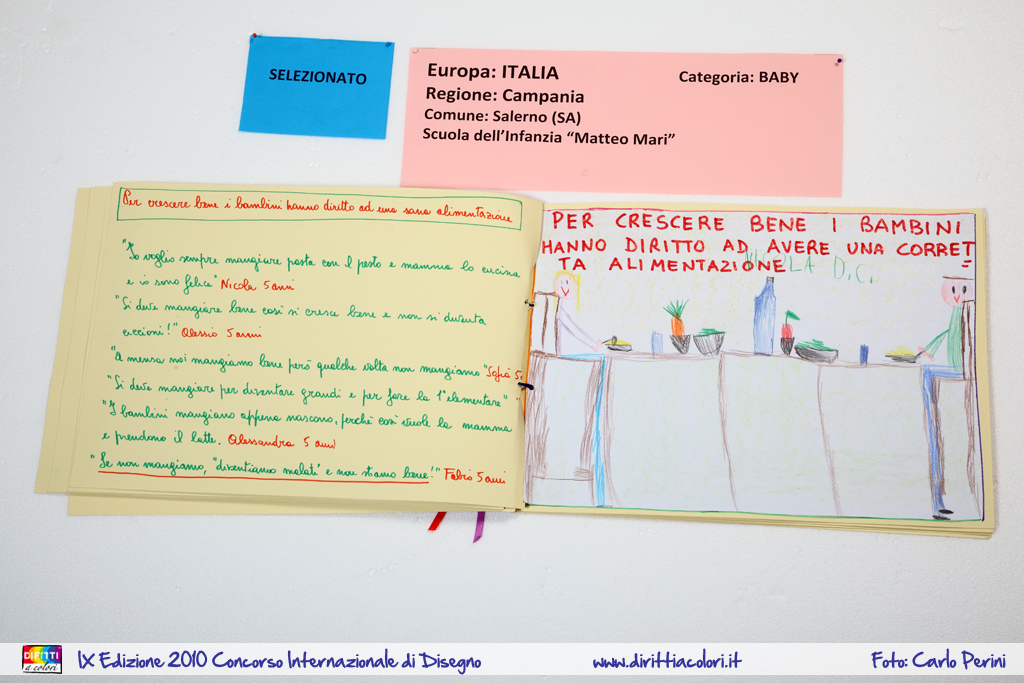 SELEZIONATO
Europa: ITALIA Categoria: BABY
Regione: Campania
Comune: Salerno (SA)
Scuola dell'Infanzia “Matteo Mari”
Per crescere bene i bambini hanno diritto ad una sana alimentazione
"Io voglio sempre mangiare pasta con l pesto e mamma lo cucina
e io sono felice" Nicola 5 anni
"Si deve mangiare bene così si cresce bene e non si diventa
ciccioni!" Alessio 5 anni
"A mensa noi mangiamo bene però qualche volta non mangiamo" Sofia 5
"Si deve mangiare per diventare grandi e per fare la 1ª elementare"
"I bambini mangiano appena nascono, perché così vuole la mamma
e prendono il latte. Alessandra 5 anni
"Se non mangiamo, "diventiamo malati" e non stiamo bene!" Fabio 5 anni
PER CRESCERE BENE I BAMBINI
HANNO DIRITTO AD AVERE UNA CORRET
TA ALIMENTAZIONE
D.C.
DIRITTI
a colori
IX Edizione 2010 Concorso Internazionale di Disegno
www.dirittiacolori.it
Foto: Carlo Perini